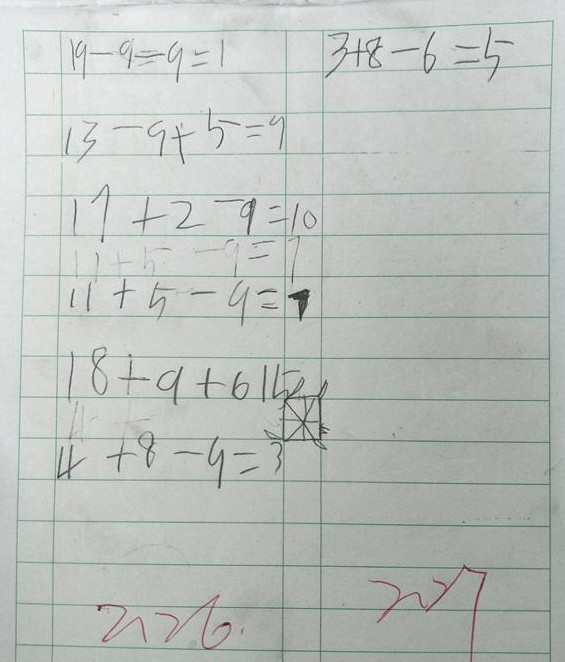 19-9=9=1
3+8-6=5
13-9+5=9
17+2-9=10
11+5-9=7
11+5-9=7
18+9+615
4+8-9=3
2.26.
2.27